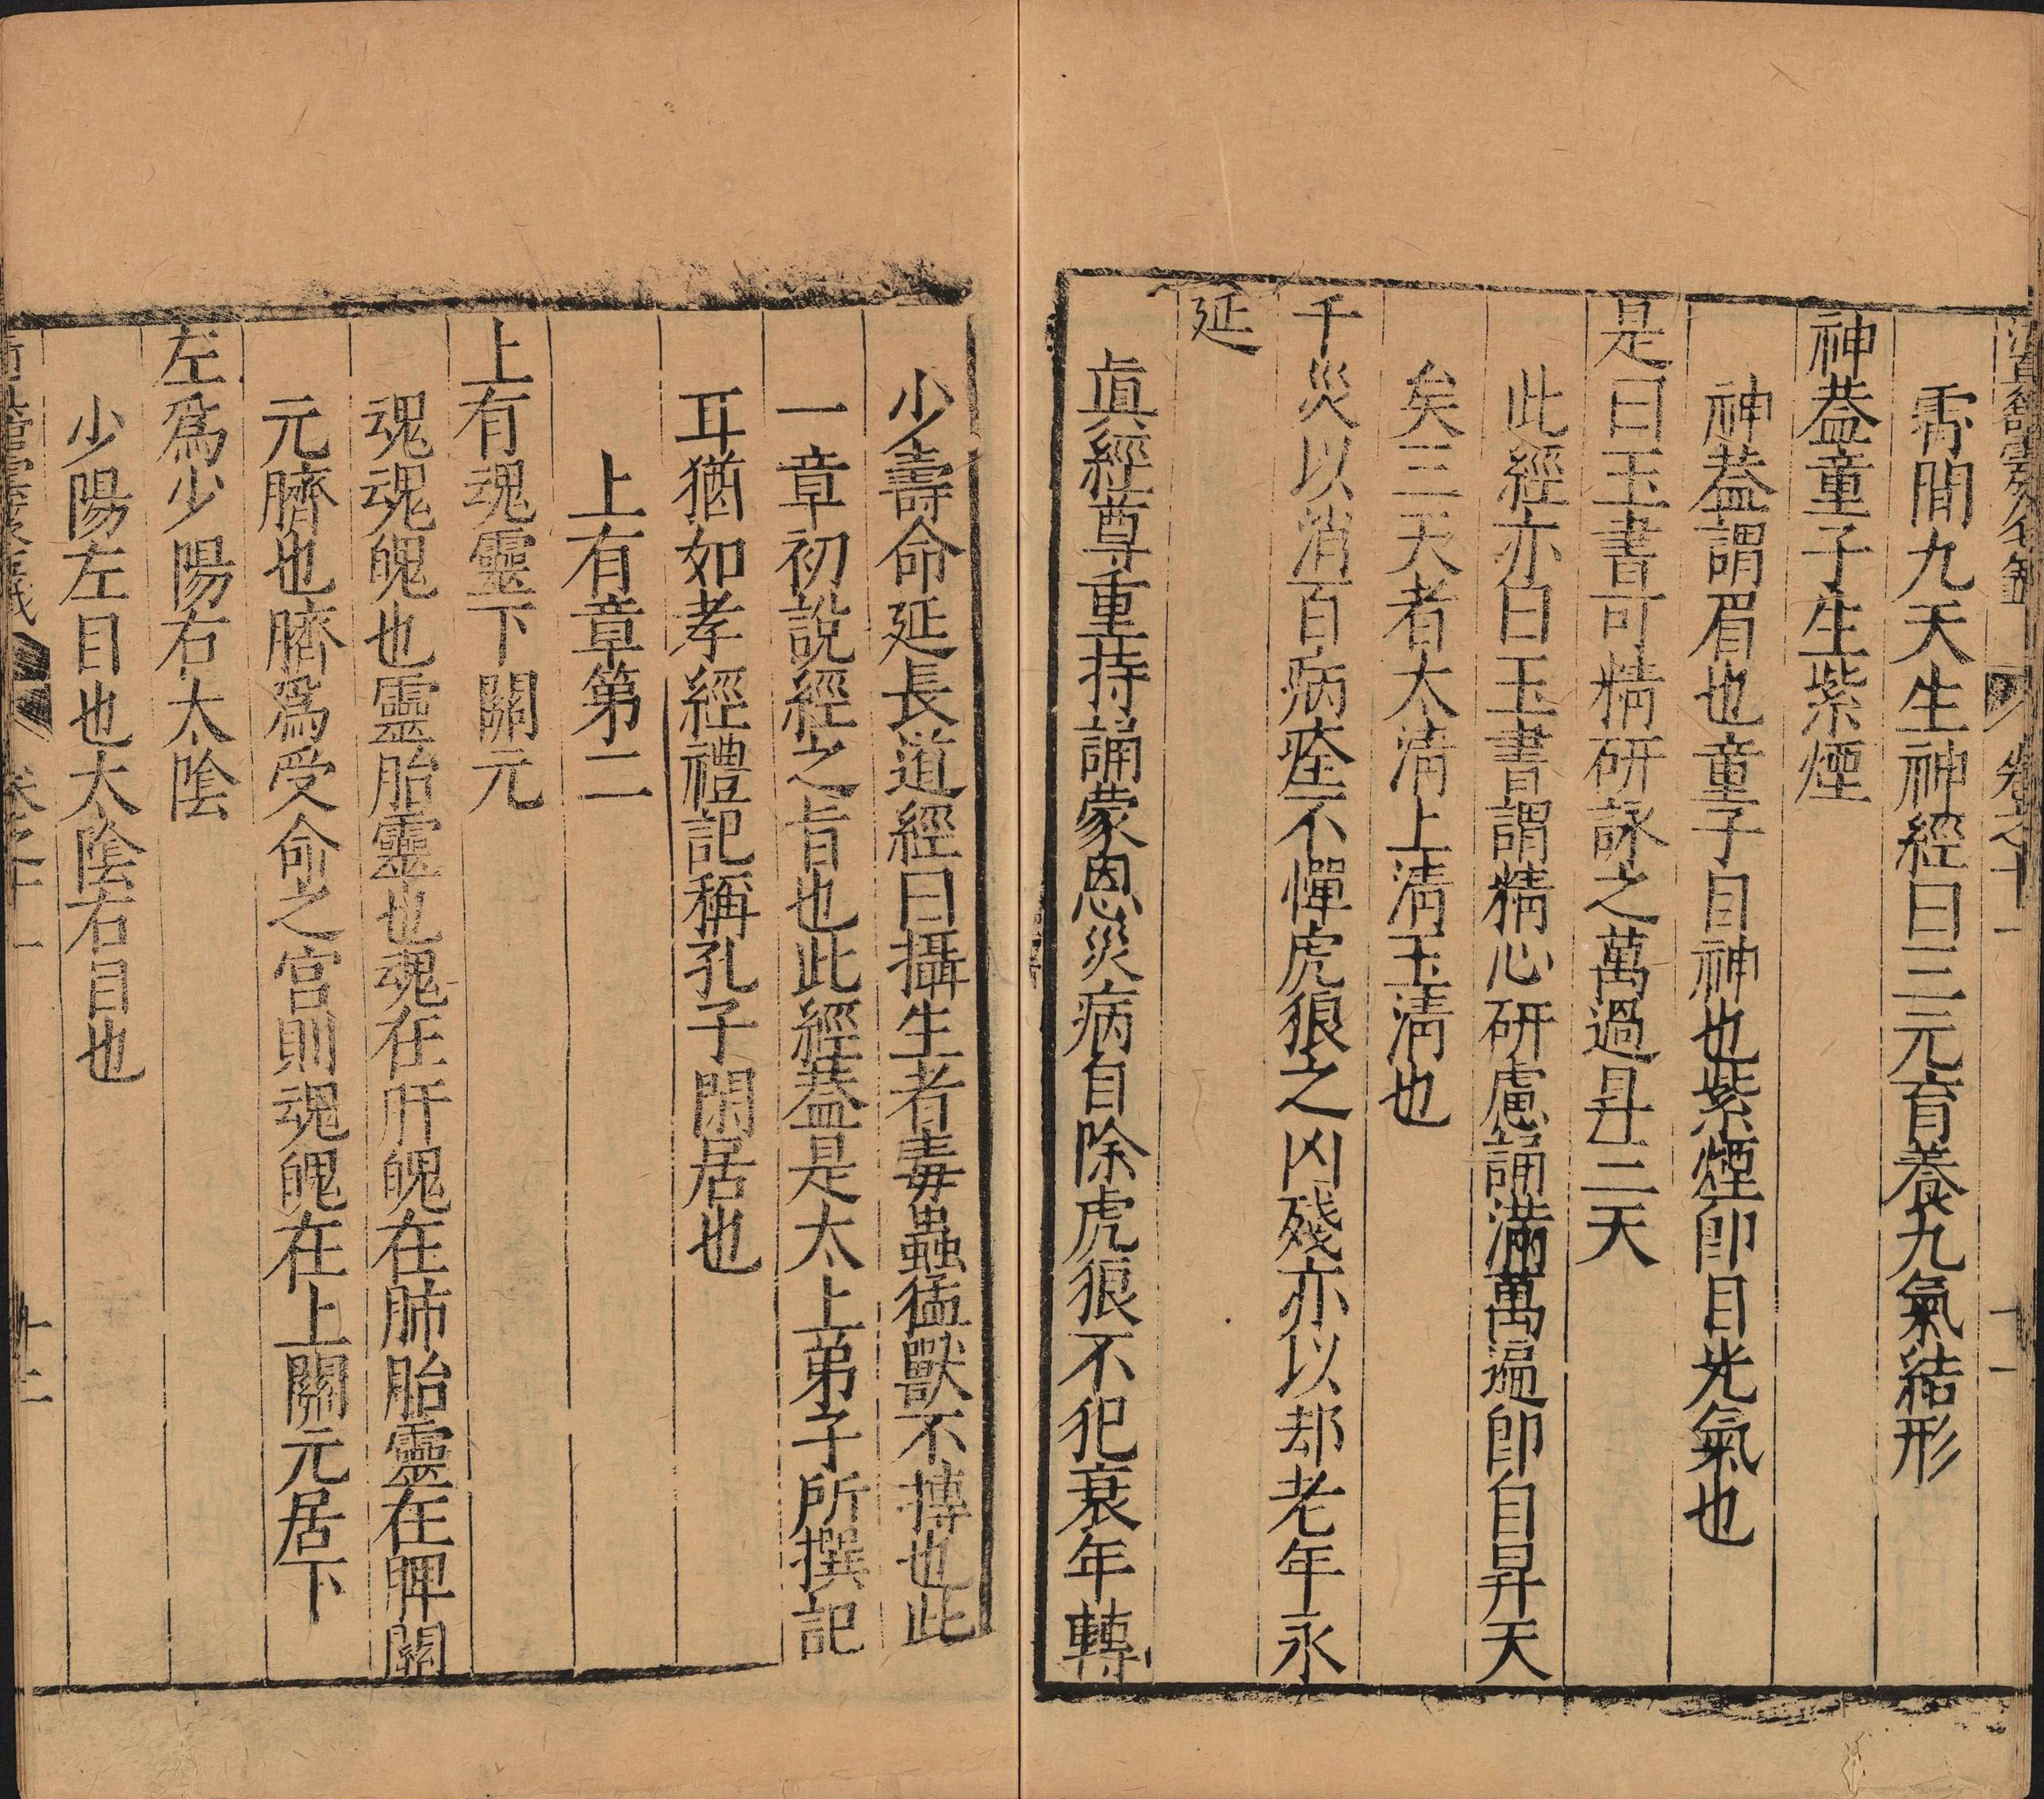 卷之十一
十一
霄間九天生神經曰三元育養九氣結形
神葢童子生紫煙
神葢謂眉也童子目神也紫煙卽目光氣也
是曰玉書可精研詠之萬過昇三天
此經亦曰玉書謂精心研慮誦滿萬遍卽自昇天
矣三天者太淸上淸玉淸也
千災以消百病痊不憚虎狼之凶殘亦以却老年永
延
眞經尊重持誦蒙恩災病自除虎狼不犯衰年轉
少壽命延長道經曰攝生者毒蟲猛獸不搏也此
一章初說經之旨也此經葢是太上弟子所撰記
耳猶如孝經禮記稱孔子閒居也
上有章第二
上有魂靈下關元
魂魂魄也靈胎靈也魂在肝魄在肺胎靈在脾關
元臍也臍爲受命之宮則魂魄在上關元居下
左爲少陽右太陰
少陽左目也太陰右目也
卷之十一
十二